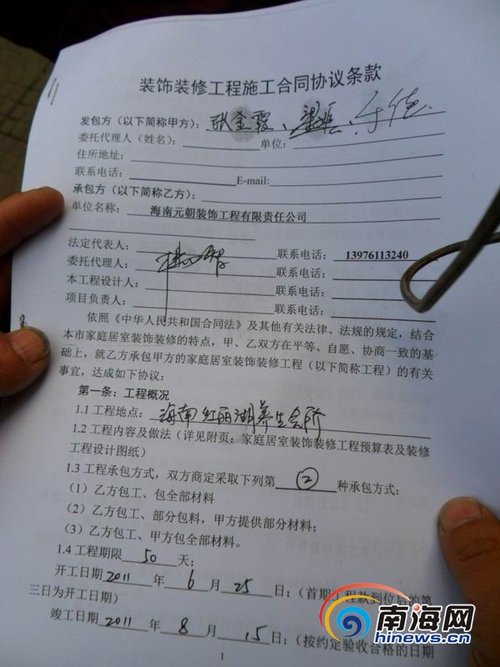 装饰装修工程施工合同协议条款
发包方（以下简称甲方）：张金霞、
委托代理人（姓名）： 单位：
住所地址：
联系电话： E-mail:
承包方（以下简称乙方）：
单位名称： 海南元朝装饰工程有限责任公司
法定代表人： 联系电话： 13976113240
委托代理人： 联系电话：
本工程设计人： 联系电话：
项目负责人： 联系电话：
依照《中华人民共和国合同法》及其他有关法律、法规的规定，结合
本市家庭居室装饰装修的特点，甲、乙双方在平等、自愿、协商一致的基
础上，就乙方承包甲方的家庭居室装饰装修工程（以下简称工程）的有关
事宜，达成如下协议：
第一条：工程概况
1.1 工程地点： 海南红丽湖养生会所
1.2 工程内容及做法（详见附页：家庭居室装饰装修工程预算表及装修
工程设计图纸）
1.3 工程承包方式，双方商定采取下列第 ② 种承包方式：
（1）乙方包工、包全部材料
（2）乙方包工、部分包料，甲方提供部分材料；
（3）乙方包工、甲方包全部材料。
1.4 工程期限 50 天；
开工日期 2011 年 6 月 25 日；（首期工程款到位后的第
三日为开工日期）
竣工日期 2011 年 8 月 15 日；（按约定验收合格的日期
1
南海网
hinews.cn